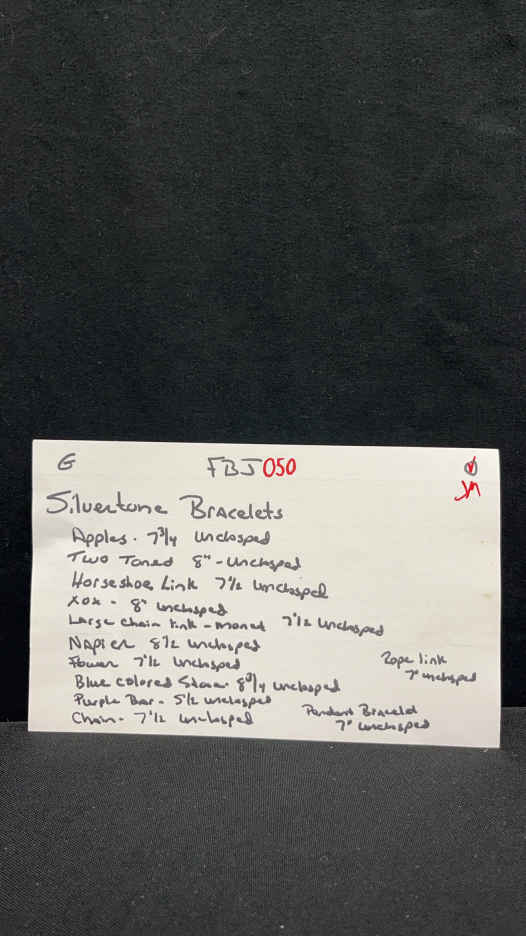 G FBJ050
JM
Silvertone Bracelets
Apples - 7 3/4 unclasped
Two Toned 8" - unclasped
Horseshoe Link 7 1/2 unclasped
XOX - 8" unclasped
Large chain link - monet 7 1/2 unclasped
Napier 8 1/2 unclasped
Flower 7 1/2 unclasped
Rope link
7" unclasped
Blue colored Stone 8 3/4 unclasped
Purple Bar - 5 1/2 unclasped
Chain - 7 1/2 unclasped
Pendant Bracelet
7" unclasped